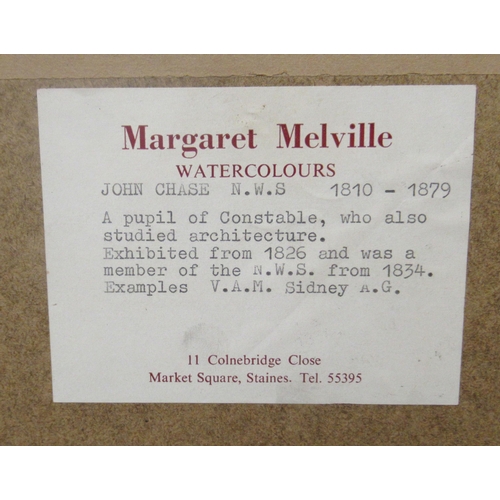 Margaret Melville
WATERCOLOURS
JOHN CHASE N.W.S 1810 - 1879
A pupil of Constable, who also
studied architecture.
Exhibited from 1826 and was a
member of the N.W.S. from 1834.
Examples V.A.M. Sidney A.G.
11 Colnebridge Close
Market Square, Staines. Tel. 55395